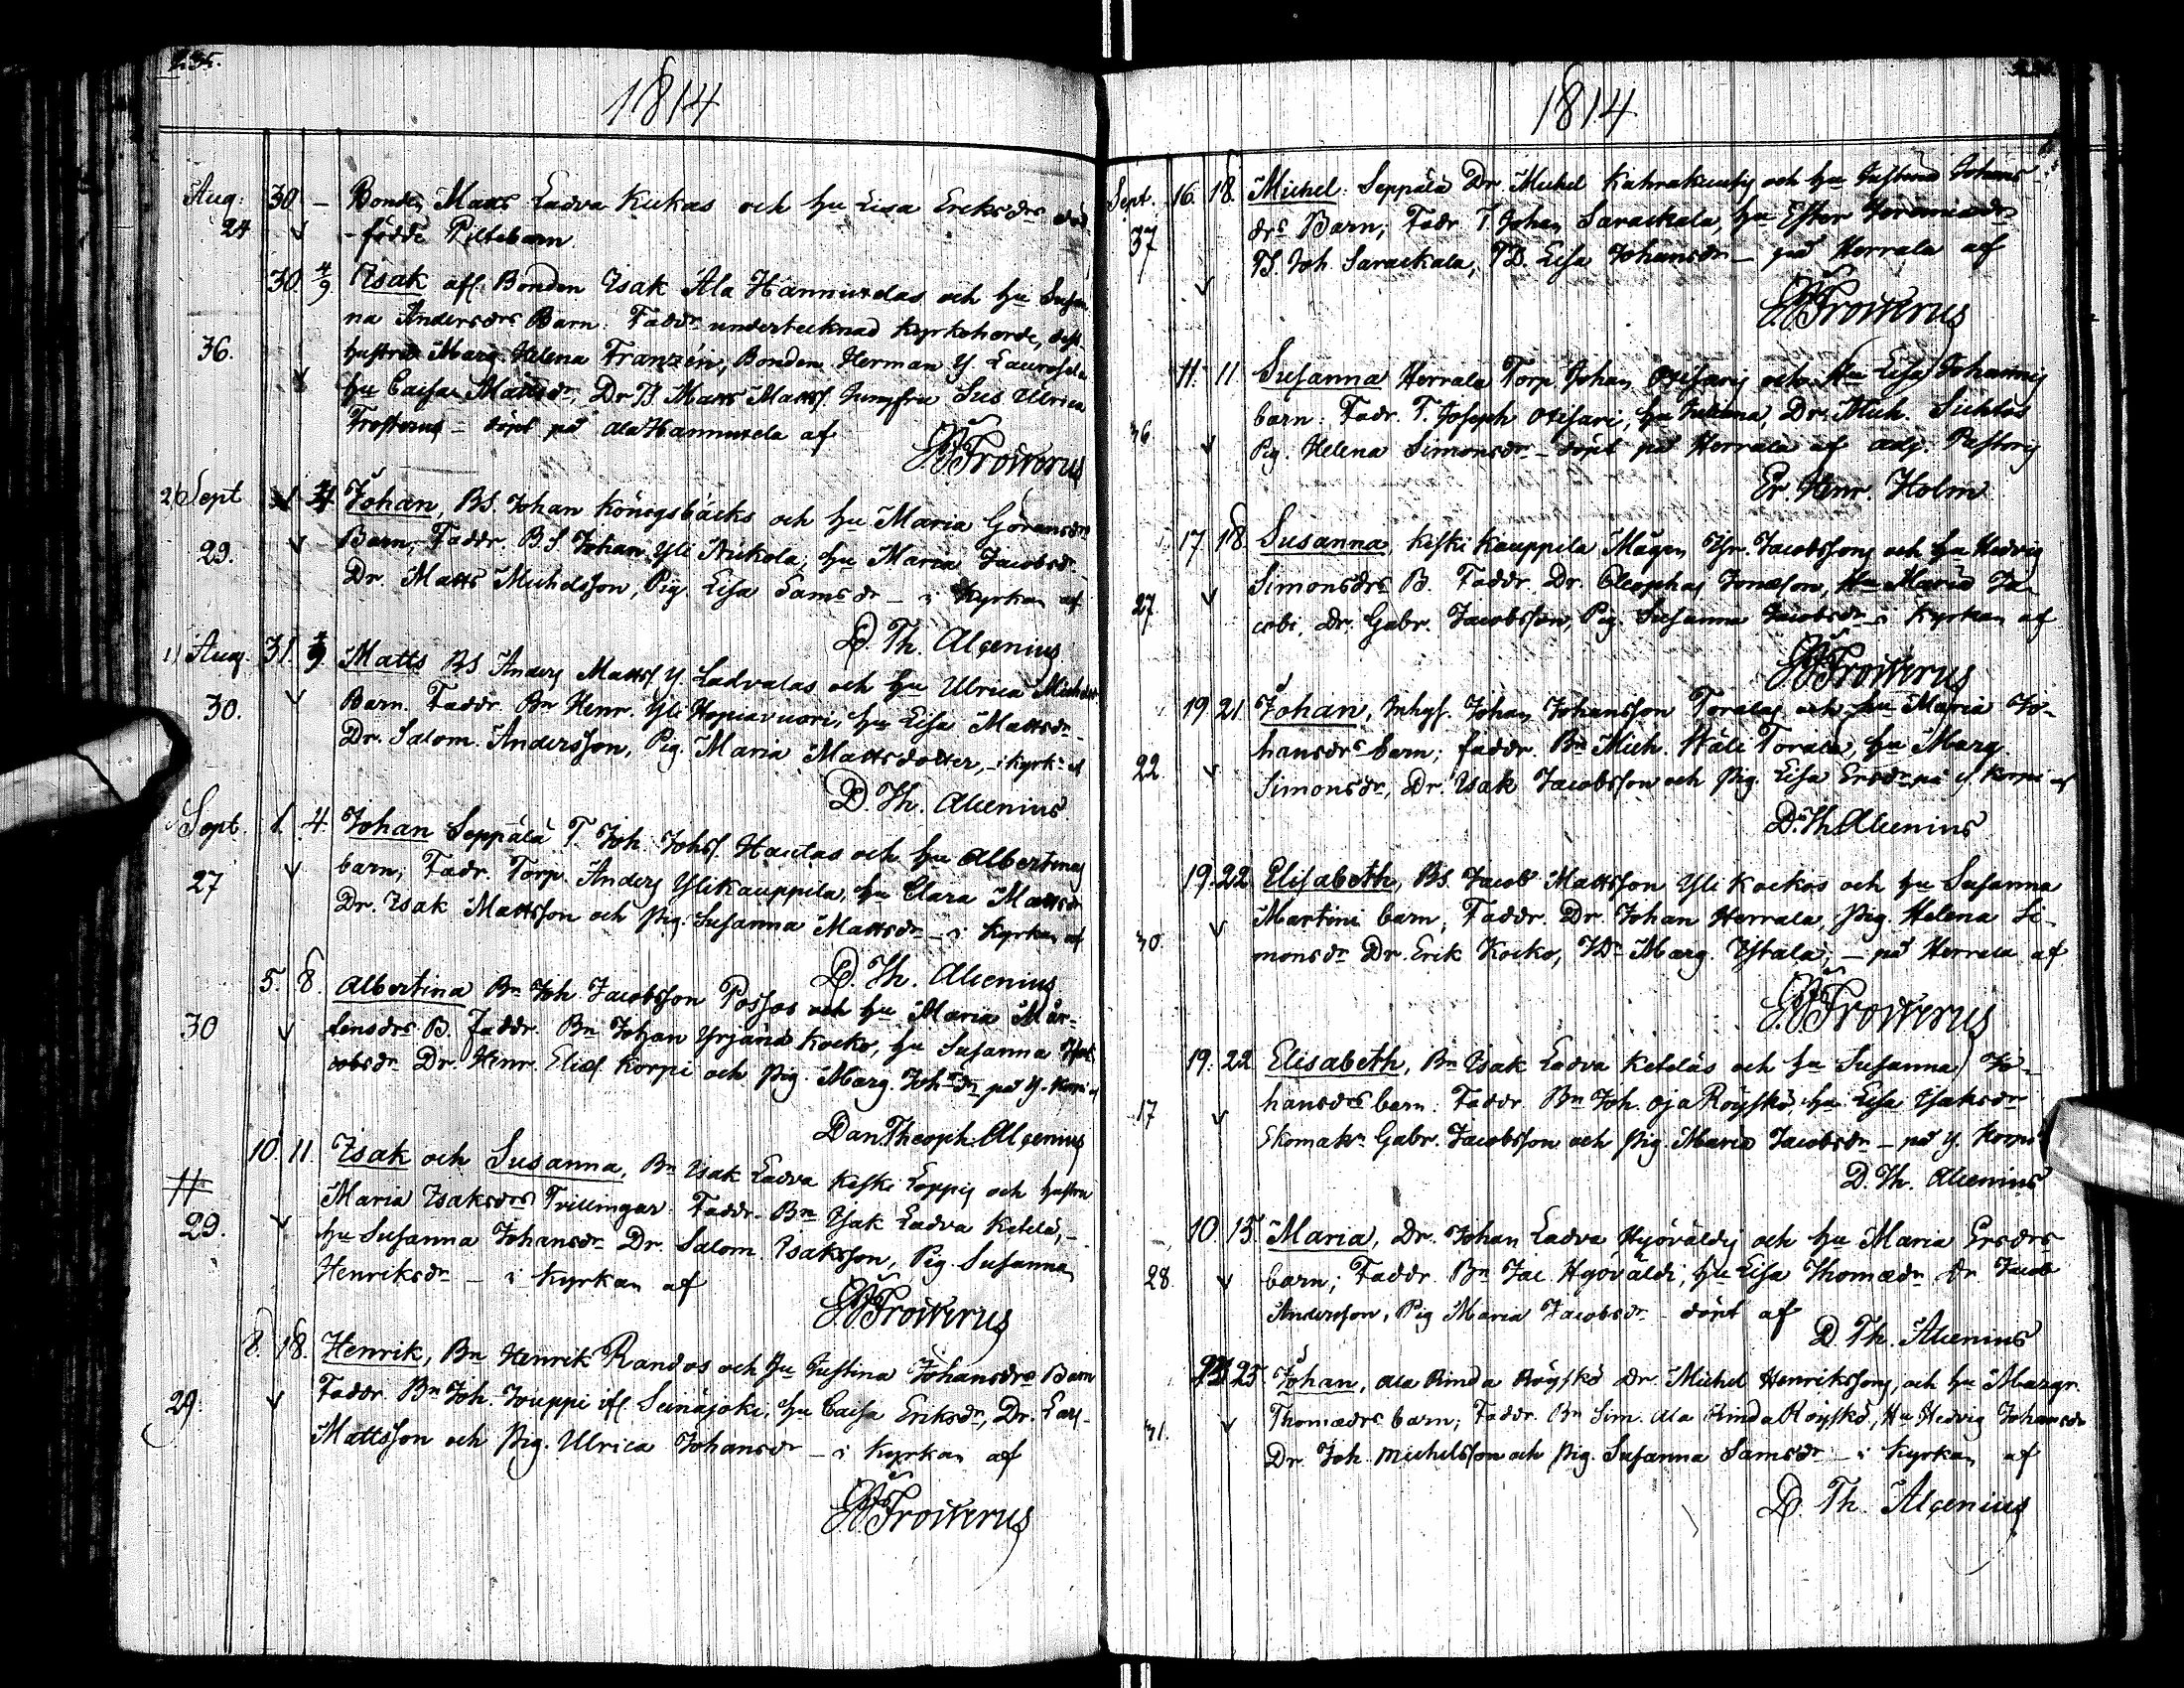 1814
Aug: 30 – Bonden Matts Ladva Kukas och hu Lisa Ericksdrs död
24 födde Piltebarn
30. 4/9 Isak afl. Bonden Isak Ala Hannukselas och hu Susan
na Andersdrs Barn. Faddr undertecknad Kyrkoherde, dess
36. hustru Marg. Helena Franzén, Bonden Herman Y. Laurosela
hu Caisa Mattsdr, Dr B Matts Mattss. Jungfru Sus Ulrica
Frosterus – döpt på Ala Hannuksela af
Frosterus
Sept 1 4 Johan, BS. Johan Könogsbäcks och hu Maria Göransdrs
29. Barn, Faddr. BS Johan Yli Nickola, hu Maria Jacobsdr
Dr. Matts Michelsson, Pig. Lisa Samsdr – i Kyrkan af
D. Th. Alcenius
Aug. 31. 4/9. Matts BS Anders Mattss. Y. Ladvalas och hu Ulrica Michelsdrs
30. Barn. Faddr. Bn Henr. Yli Hopiavuori, hu Lisa Mattsdr
Dr. Salom. Andersson, Pig. Maria Mattsdotter, – i kyrkn af
D. Th. Alcenius.
Sept. 1. 4. Johan Seppälä T. Joh. Johss. Hautas och hu Albertinas
27 barn; Fadr. Torp. Anders Ylikauppila, hu Clara Mattsdr
Dr. Isak Mattsson och Pig. Susanna Mattsdr – i Kyrkan af
D. Th. Alcenius
5. 8. Albertina Bn Joh. Jacobsson Possos och hu Maria Mår-
30 tensdrs B. Faddr. Bn Johan Yrjänä Kocko, hu Susanna
cobsdr Dr. Henr. Elias. Korpi och Pig. Marg. Johsdr på Y. Korpi af
Dan Theoph. Alcenius
10. 11. Isak och Susanna, Bn Isak Ladva Keski Loppis och hustru
Maria Isaksdrs Tvillingar. Faddr. Bn Isak Ladva Ketelä, –
29. hu Susanna Johansdr Dr. Salom. Isaksson, Pig. Susanna
Henriksdr – i Kyrkan af
Frosterus
8. 18. Henrik, Bn Henrik Randos och hu Justina Johansdrs Barn
29. Faddr. Bn Joh. Jouppi ifr. Seinäjoki, hu Caisa Eriksdr, Dr. Carl
Mattsson och Pig. Ulrica Johansdr – i Kyrkan af
Frosterus
1814
Sept. 16. 18. Michel: Seppälä Dr. Michel Kahrakuusis och hu Justina Johans-
37 drs Barn; Fadr T. Johan Sarackala, hu Ester Jeremiædr
TS. Joh. Sarackala, TD. Lisa Johansdr – på Herrala af
Frosterus
11. 11 Susanna Herrala Torp Johan Orisaris och Hu Lisa Johannis
36 barn. Fadr. T. Joseph Orisari, hu Juliana, Dr. Mich. Sichtos
Pig. Helena Simonsdr – döpt på Herrala af adj. Pastoris
Er Henr. Holm
17. 18. Susanna, Keski Kauppila Mågen Yr. Jacobssons och hu Hedvig
27 Simonsdrs B. Faddr. Dr. Cleophas Jonæson, Hu Maria Ja-
cobi, Dr. Gabr. Jacobsson, Pig. Susanna Jacobsdr – i Kyrkan af
Frosterus
19. 21. Johan, Inhys. Johan Johansson Toralas och hu Maria Jo-
22. hansdrs barn; faddr. Bn Mich. Wäli Torala, hu Marg.
Simonsdr, Dr. Isak Jacobsson och Pig. Lisa Ersdr på Y. Korpi af
D. Th. Alcenius
19. 22 Elisabeth, BS. Jacob Mattsson Yli Kockos och hu Susanna
30. Martini barn; Faddr. Dr. Johan Herrala, Pig. Helena Si-
monsdr Dr. Erik Kocko, Marg. – på Herrala af
Frosterus
19. 22 Elisabeth, Bn Isak Ladva Keteläs och hu Susanna Jo-
17 hansdrs barn. Faddr Bn Joh. Oja Röyskö, hu Lisa Isaksdr
Skomakr Gabr. Jacobsson och Pig. Maria Jacobsdr – på Y. Korpi
D. Th. Alcenius
10. 15. Maria, Dr. Johan Ladva Hyöväldis och hu Maria Ersdrs
28. barn; Faddr. Bn Jac. Hyöväldi, hu Lisa Thomædr Dr Jacob
Andersson, Pig Maria Jacobsdr – döpt af
D. Th. Alcenius
25 Johan, Ala Rinda Röyskö Dr. Michel Henrikssons, och hu Margr.
31. Thomædrs barn; Faddr. Bn Sim. Ala Rinda Röyskö, Hu Hedvig Johansdr
Dr. Joh. Michelsson och Pig. Susanna Samsdr – i Kyrkan af
D. Th. Alcenius